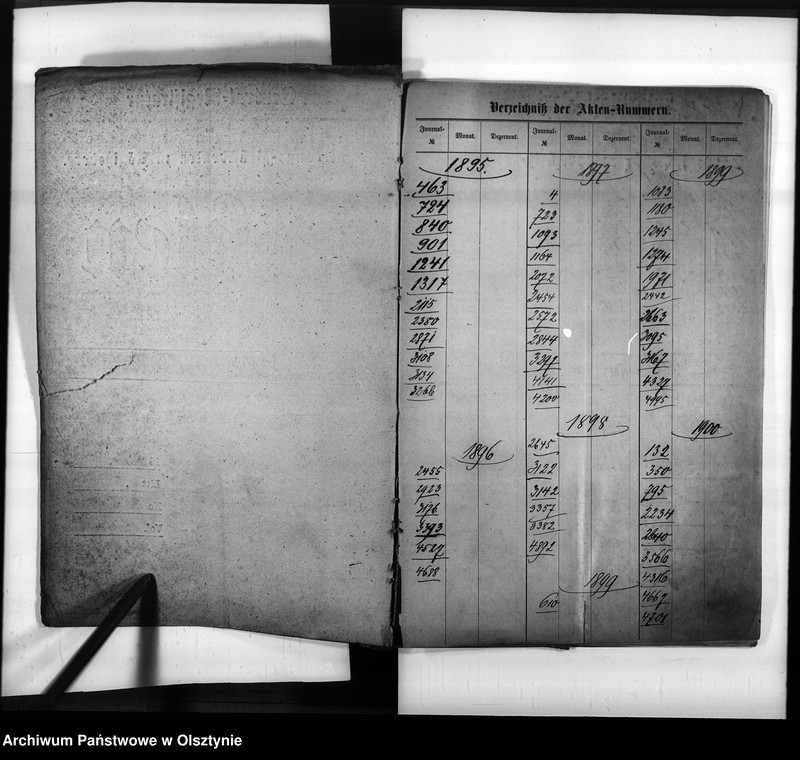 Verzeichniß der Akten-Nummern.
Journal-№ Monat. Dezernent. Journal-№ Monat. Dezernent. Journal-№ Monat. Dezernent.
1895.
463
724
840
901
1241
1317
2115
2350
2871
3108
3134
3266
1896
2455
2923
3176
3393
4527
4658
1897
4
723
1093
1164
2072
2454
2572
2844
3297
4141
4200
1898
2645
3122
3142
3357
3382
4592
1899
610
1899
1013
1180
1245
1274
1971
2442
2663
3095
3167
4327
4495
1900
132
350
795
2234
2640
3566
4316
4667
4701
Archiwum Państwowe w Olsztynie